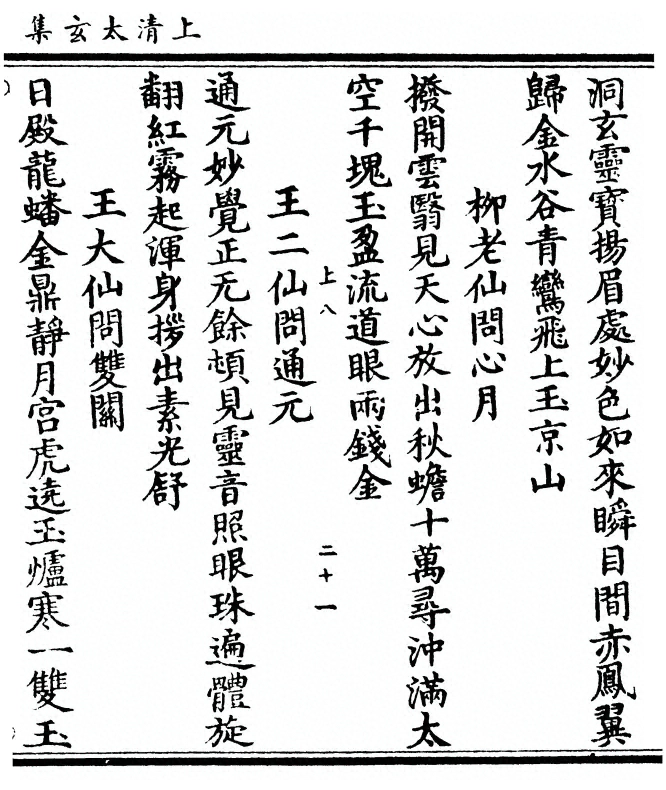 上清太玄集
洞玄靈寶揚眉處妙色如來瞬目間赤鳳翼
歸金水谷青鸞飛上玉京山
柳老仙問心月
撥開雲翳見天心放出秋蟾十萬尋沖滿太
空千塊玉盈流道眼兩錢金
上八
二十一
王二仙問通元
通元妙覺正无餘頓見靈音照眼珠遍體旋
翻紅霧起渾身拶出素光舒
王大仙問雙關
日殿龍蟠金鼎靜月宮虎遶玉爐寒一雙玉